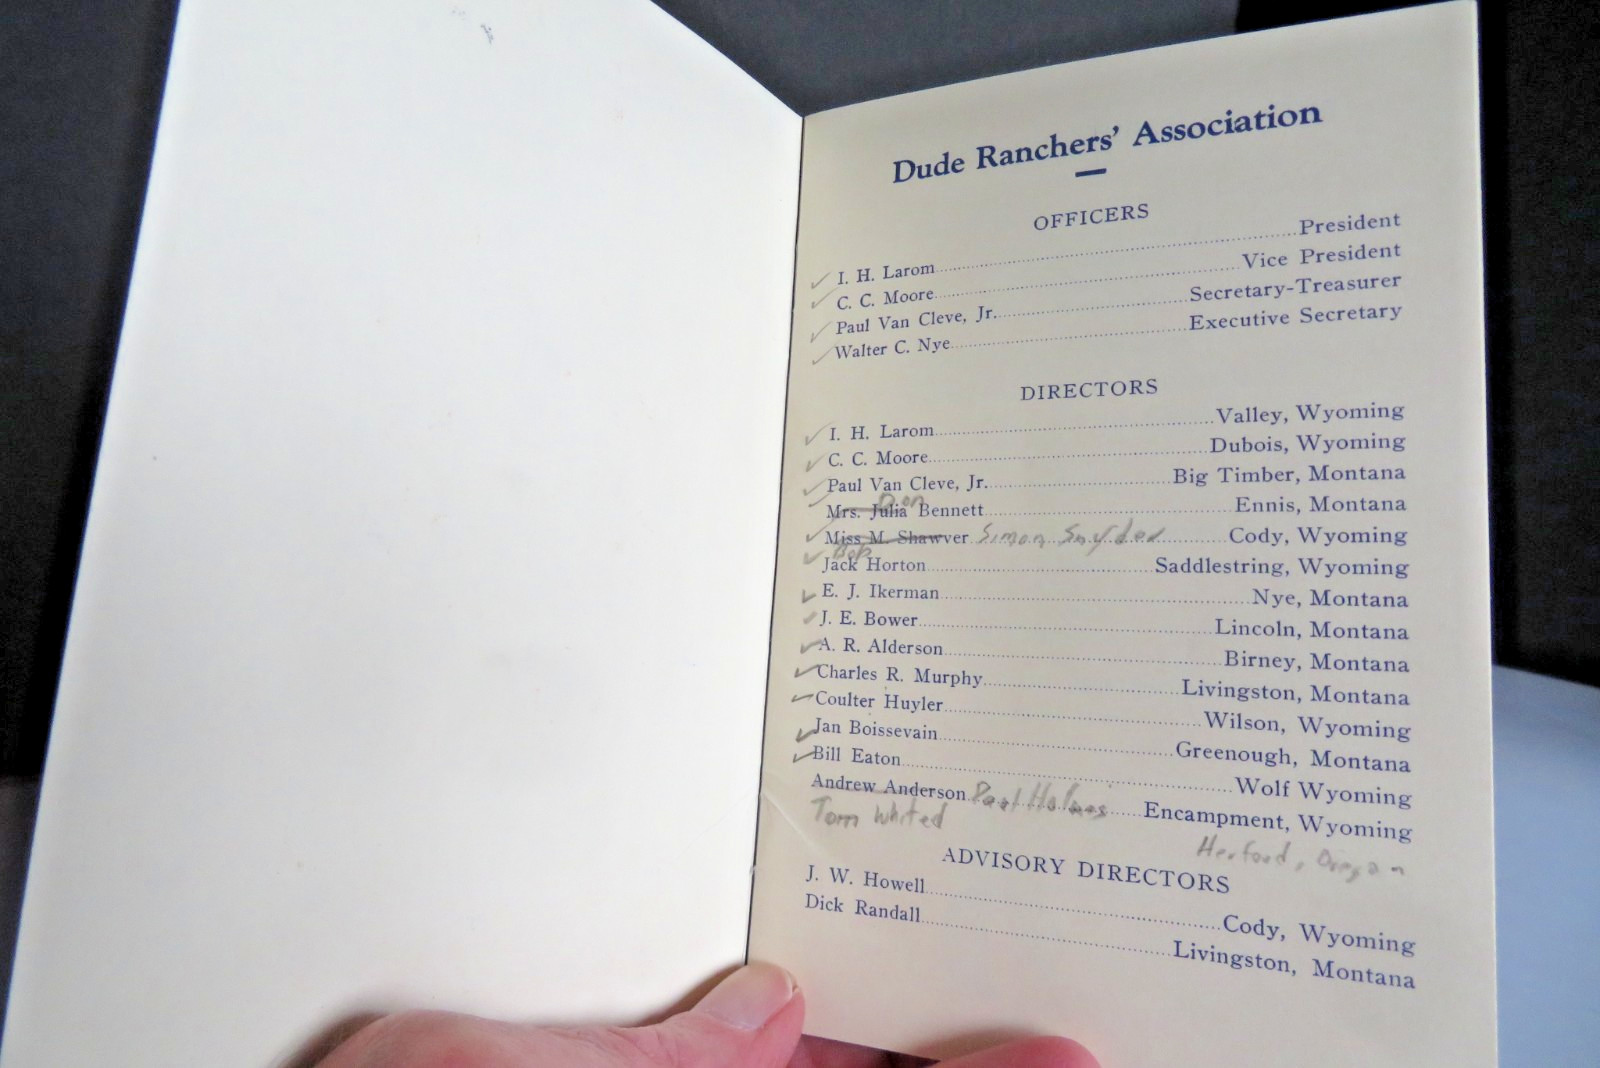 Dude Ranchers' Association
OFFICERS
I. H. Larom President
C. C. Moore Vice President
Paul Van Cleve, Jr. Secretary-Treasurer
Walter C. Nye Executive Secretary
DIRECTORS
I. H. Larom Valley, Wyoming
C. C. Moore Dubois, Wyoming
Paul Van Cleve, Jr. Big Timber, Montana
Don
Mrs. Julia Bennett Ennis, Montana
Miss M. Shawver Simon Snyder Cody, Wyoming
Bob
Jack Horton Saddlestring, Wyoming
E. J. Ikerman Nye, Montana
J. E. Bower Lincoln, Montana
A. R. Alderson Birney, Montana
Charles R. Murphy Livingston, Montana
Coulter Huyler Wilson, Wyoming
Jan Boissevain Greenough, Montana
Bill Eaton Wolf Wyoming
Andrew Anderson Paul Holmes Encampment, Wyoming
Tom Whited Herford, Oregon
ADVISORY DIRECTORS
J. W. Howell Cody, Wyoming
Dick Randall Livingston, Montana